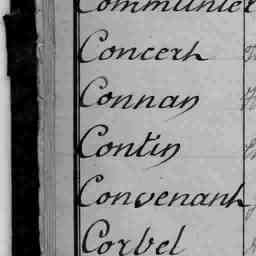 Communier
Concert
Connan
Contin
Convenant
Corbel